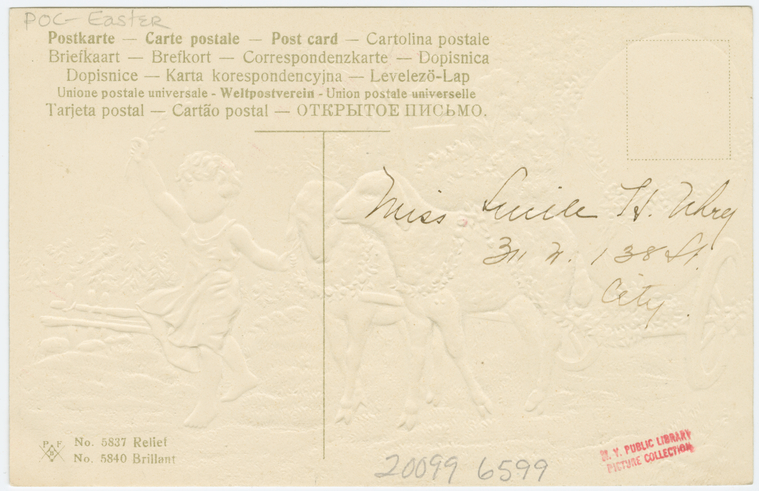 POC- Easter
Postkarte — Carte postale — Post card — Cartolina postale
Briefkaart — Brefkort — Correspondenzkarte — Dopisnica
Dopisnice — Karta korespondencyjna — Levelező-Lap
Unione postale universale - Weltpostverein - Union postale universelle
Tarjeta postal — Cartão postal — ОТКРЫТОЕ ПИСЬМО.
Miss Lucile H.
138 St.
City.
P. F.
No. 5837 Relief
No. 5840 Brillant
20099 6599
N. Y. PUBLIC LIBRARY
PICTURE COLLECTION